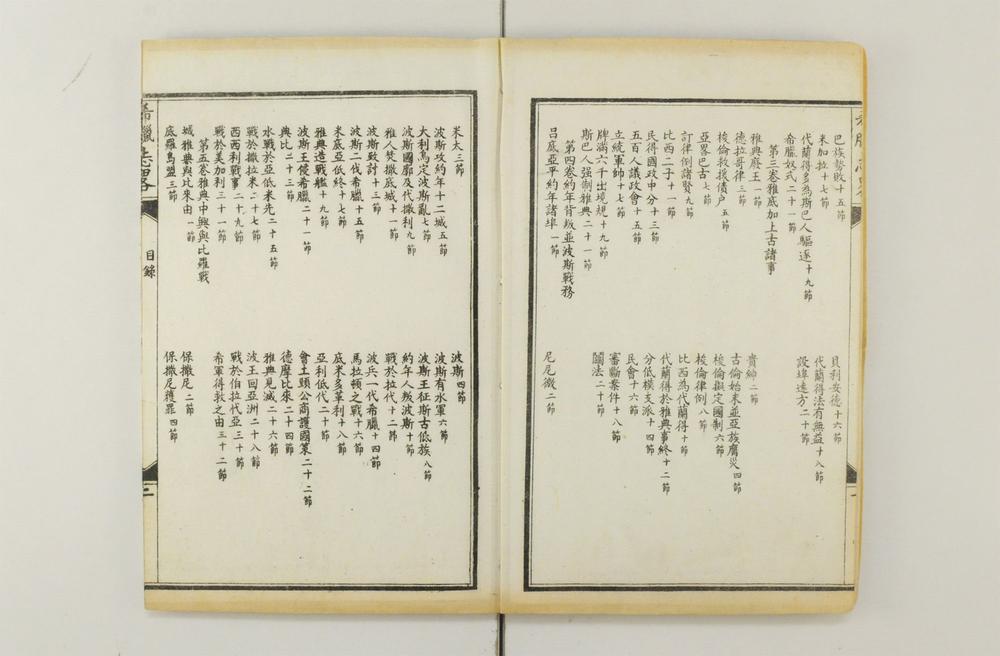 巴族勢敗十五節
貝利安德十六節
米加拉十七節
代蘭得法有無益十八節
代蘭得多為斯巴人驅逐十九節
設埠遠方二十節
希臘奴式二十一節
第三卷雅底加上古諸事
雅典廢王一節
貴紳二節
德拉哥律三節
古倫始末並亞族膺災四節
梭倫救援債戶五節
梭倫擬定國制六節
亞畧巴古七節
梭倫律例八節
訂律例諸賢九節
比西為代蘭得十節
比西二子十一節
代蘭得於雅典事終十二節
民得國政中分十三節
分低模支派十四節
五百人議政會十五節
民會十六節
立統軍帥十七節
審斷案件十八節
牌滿六千出境規十九節
關法二十節
斯巴人强制雅典二十一節
第四卷約年背叛並波斯戰務
呂底亞平約年諸埠一節
尼尼微二節
米太三節
波斯四節
波斯攻約年十二城五節
波斯有水軍六節
大利烏定波斯亂七節
波斯王征斯古低族八節
波斯國廓及代撒利九節
約年人叛波斯十節
雅人焚撒底城十一節
戰於拉代十二節
波斯致討十三節
波兵一代希臘十四節
波斯二伐希臘十五節
馬拉頓之戰十六節
米底亞低終十七節
底米多革利十八節
雅典造戰艦十九節
亞利低代二十節
波斯王侵希臘二十一節
會土頭公商護國策二十二節
典比二十三節
德摩比來二十四節
水戰於亞低米先二十五節
雅典見滅二十六節
戰於撒拉米二十七節
波王回亞洲二十八節
西西利戰事二十九節
戰於伯拉代亞三十節
戰於美加利三十一節
希軍得敦之由三十二節
第五卷雅典中興與比羅戰
城雅典與比來由一節
保撒尼二節
底羅島盟三節
保撒尼獲罪四節
希臘志畧
目錄
二